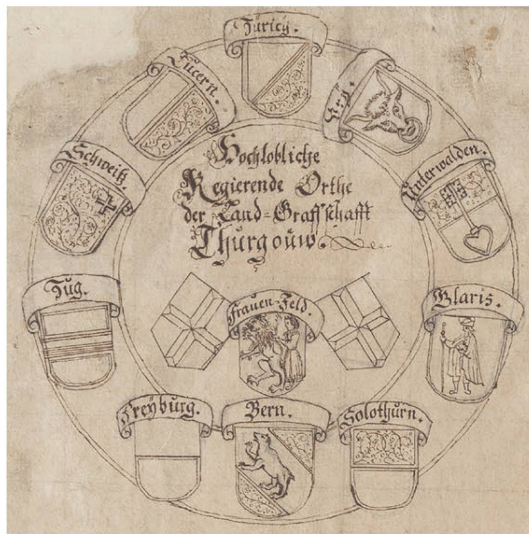 Zürich.
Lucern.
Ury.
Schweitz.
Unterwalden.
Hochlobliche
Regierende Orthe
der Land=Graffschafft
Thurgouw
Zug.
Frauen=Feld.
Glaris.
Freyburg.
Bern.
Solothurn.